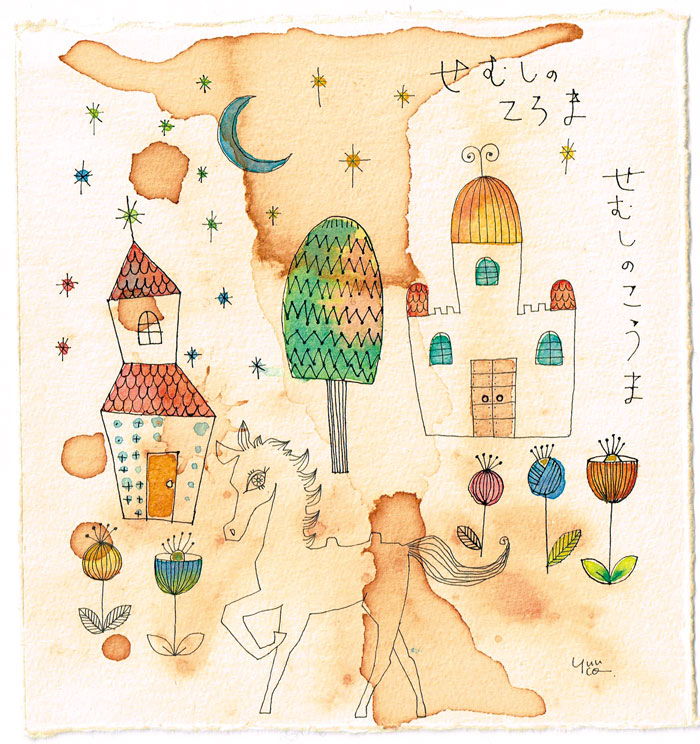 せむしの
ころま
せむしのこうま
yuu
co.